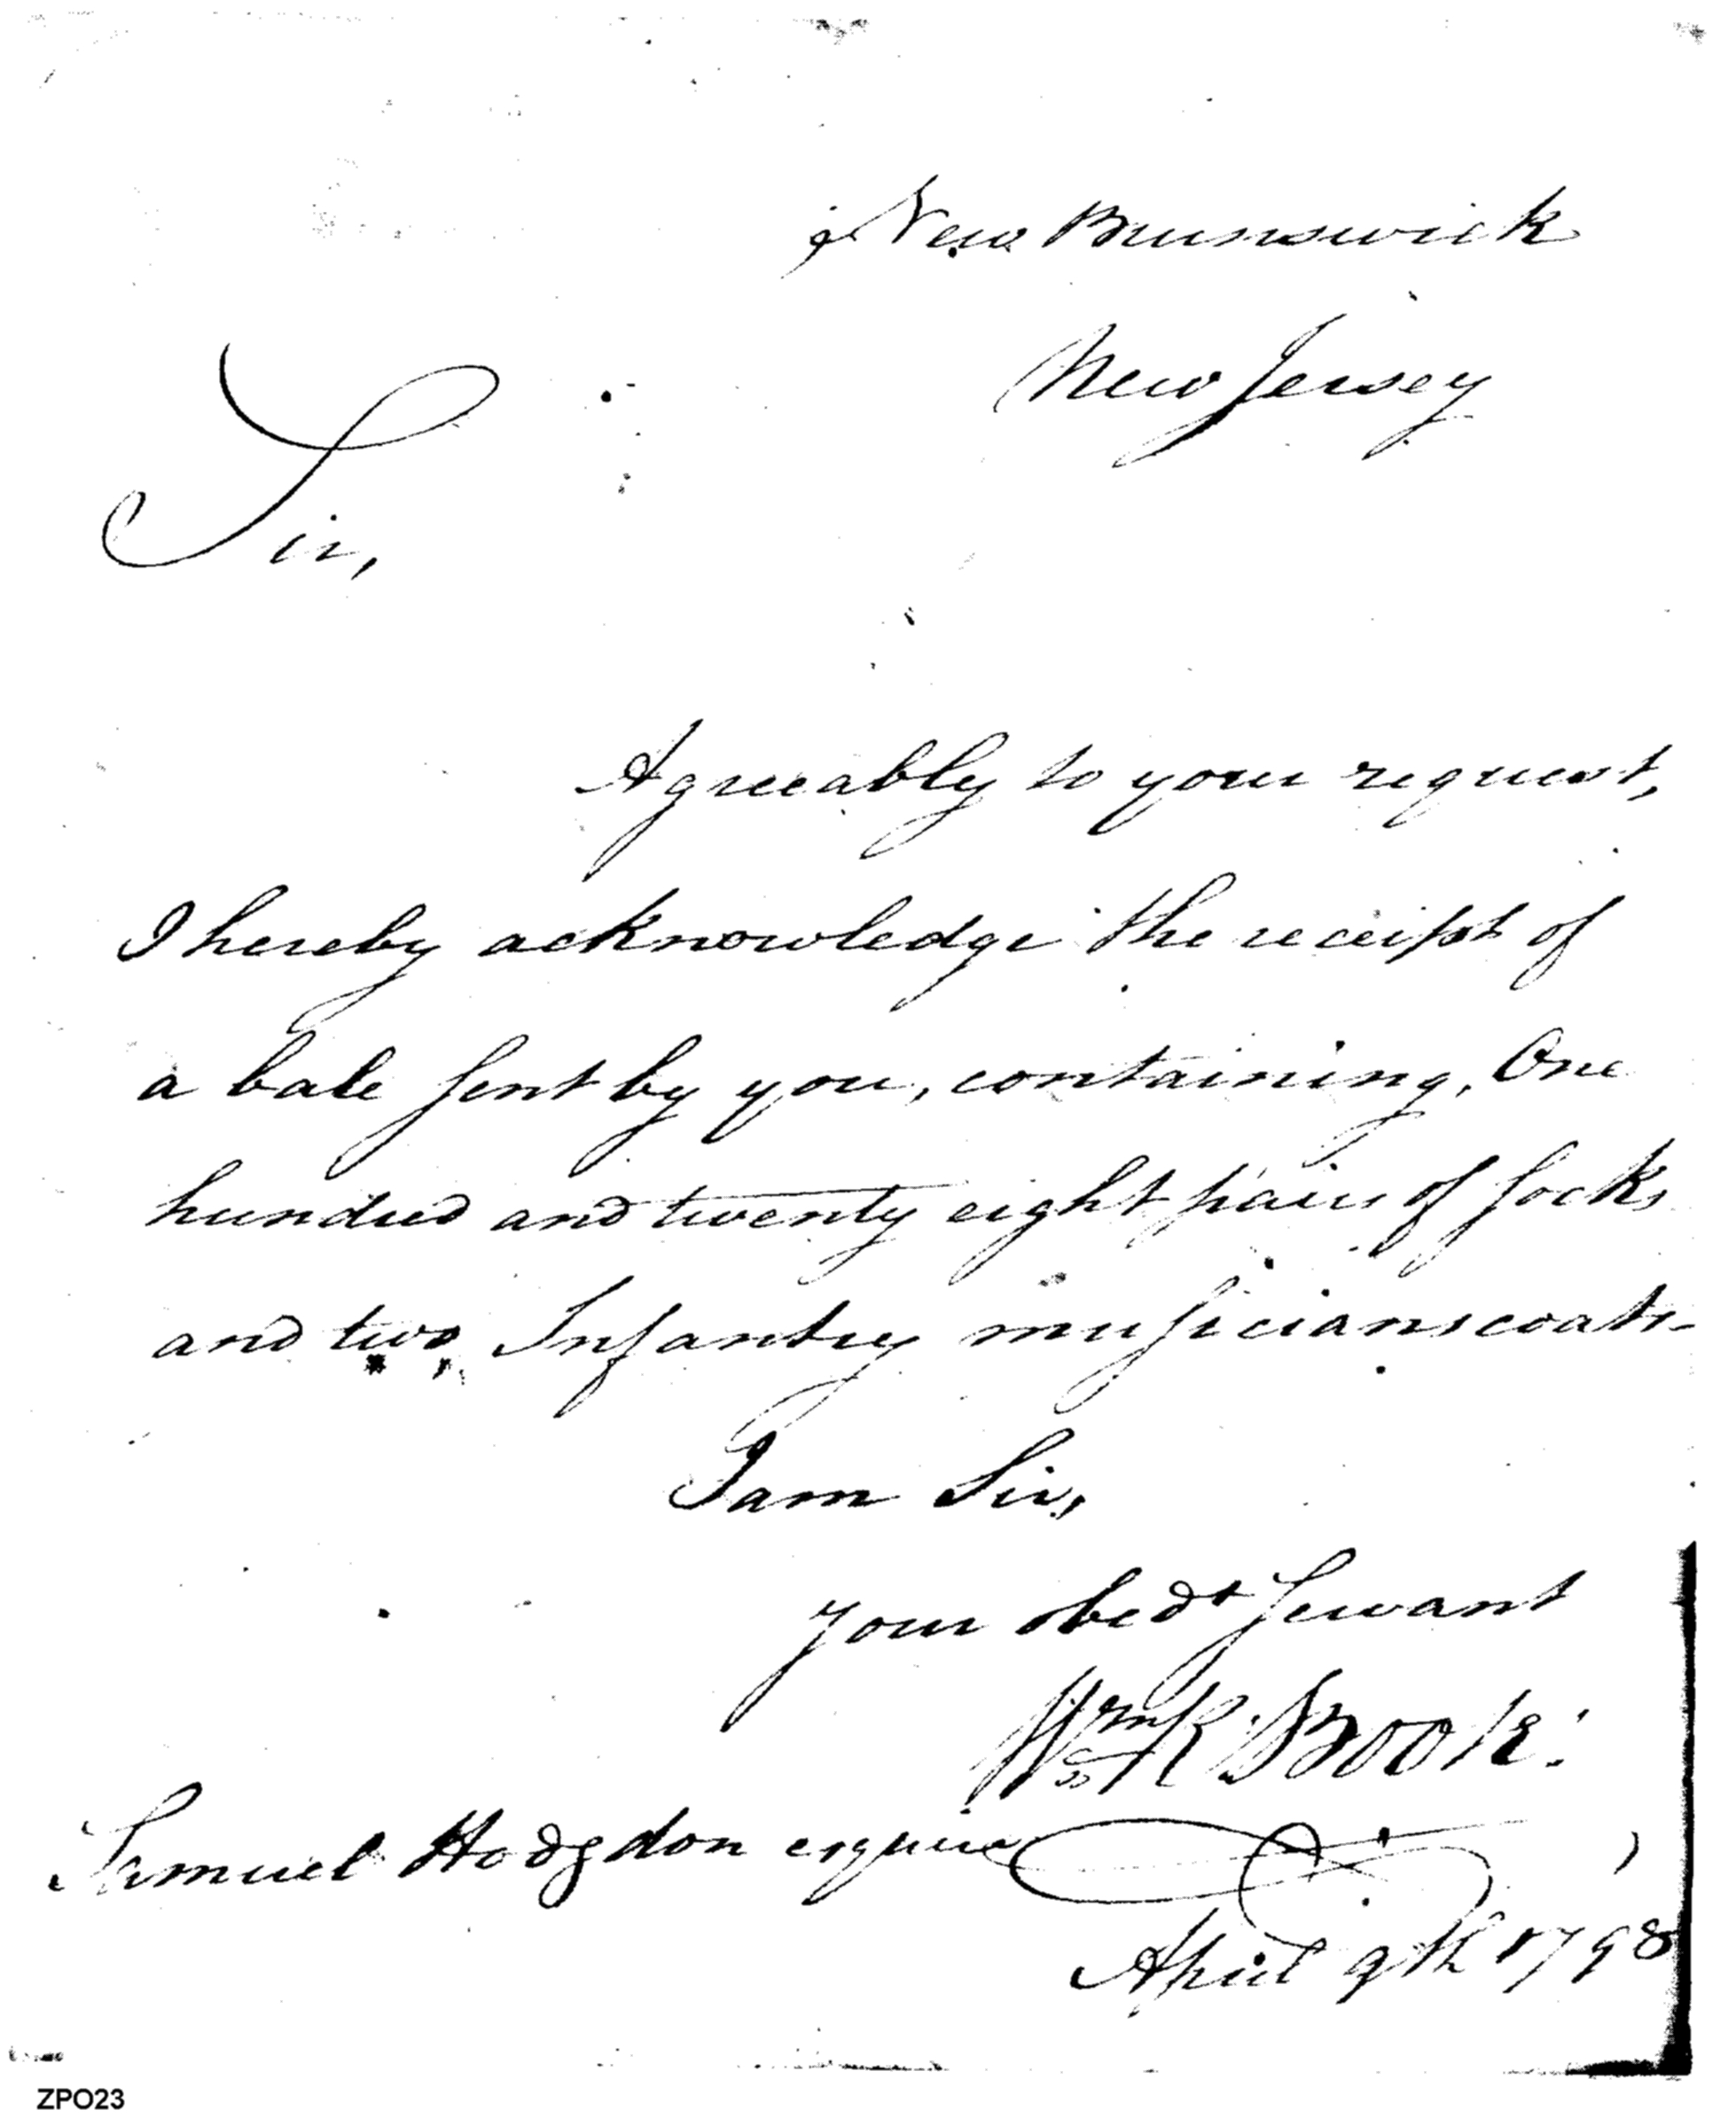 New Brunswick
New Jersey
Sir,
Agreeably to your request,
I hereby acknowledge the receipt of
a bale sent by you, containing, One
hundred and twenty eight pairs of socks
and two Infantry musicians coats-
I am Sir,
your obedt servant
Wm K Brook:
Samuel Hodgdon esquire
April 9th 1798
ZPO23